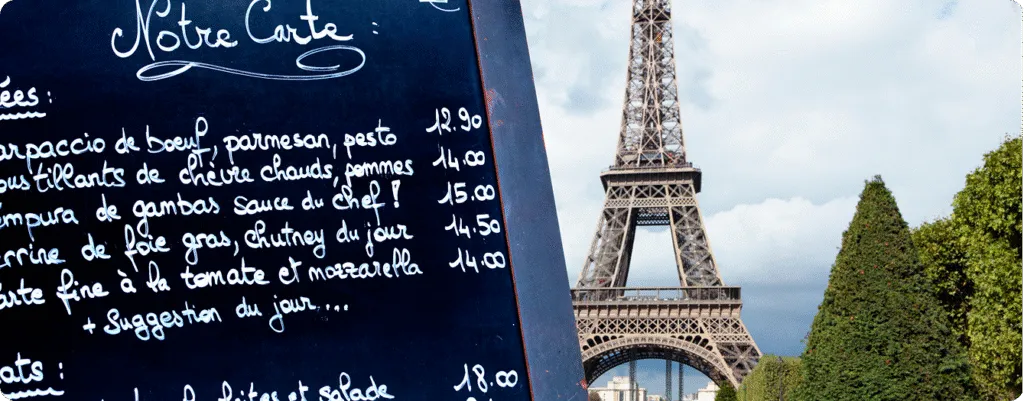 Notre Carte :
ées :
arpaccio de boeuf, parmesan, pesto 12.90
oustillants de chèvre chauds, pommes 14.00
empura de gambas sauce du chef ! 15.00
errine de foie gras, chutney du jour 14.50
arte fine à la tomate et mozzarella 14.00
+ Suggestion du jour....
ats :
et salade 18.00